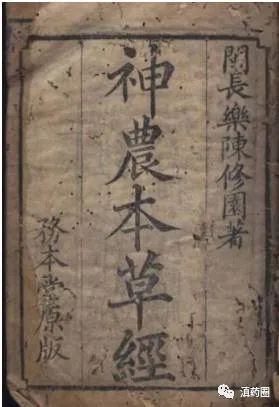 閩長樂陳修園著
神農本草經
務本堂原版
滇药圈